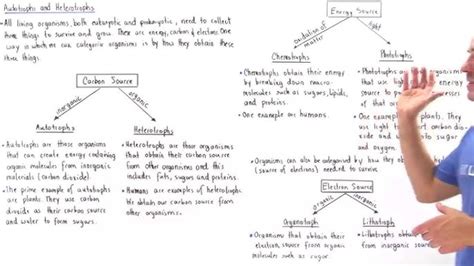 Autotrophs and Heterotrophs
• All living organisms, both eukaryotic and prokaryotic, need to collect
three things to survive and grow. They are energy, carbon & electrons. One
way in which we can categorize organisms is by how they obtain these
three things.
Carbon Source
inorganic
organic
Autotrophs
• Autotrophs are those organisms
that can create energy-containing
organic molecules from inorganic
materials (carbon dioxide).
• The prime example of autotrophs
are plants. They use carbon
dioxide as their carbon source
and water to form sugars.
Heterotrophs
• Heterotrophs are those organisms
that obtain their carbon source
from other organisms and this
includes fats, sugars and proteins.
• Humans are examples of heterotrophs.
We obtain our carbon source from
other organisms.
Energy Source
oxidation of
matter
light
Chemotrophs
• Chemotrophs obtain their energy
by breaking down macro-
molecules such as sugars, lipids,
and proteins.
• One example are humans.
Phototrophs
• Phototrophs are
that use light
energy source to
processes
• One example are plants. They
use light to convert carbon
dioxide and
and oxygen.
• Organisms can also be categorized by how they obtain
(source of electrons) needed to survive.
Electron Source
organic
inorganic
Organotroph
• Organisms that obtain their
electron source from organic
molecules such as sugar
Lithotroph
• Lithotrophs obtain
from inorganic sour